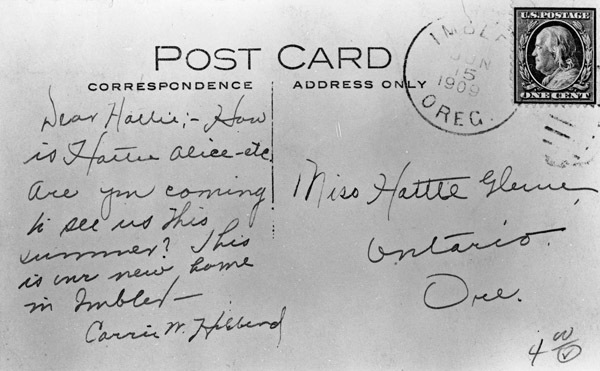 POST CARD
CORRESPONDENCE
ADDRESS ONLY
IMBLER
JUN
15
1909
OREG.
U.S. POSTAGE
ONE CENT
Dear Hallie;- How
is Hattie Alice-etc.
Are you coming
to see us this
summer? This
is our new home
in Imbler-
Carrie W. Hibberd
Miss Hattie
Ontario.
Ore.
4 00